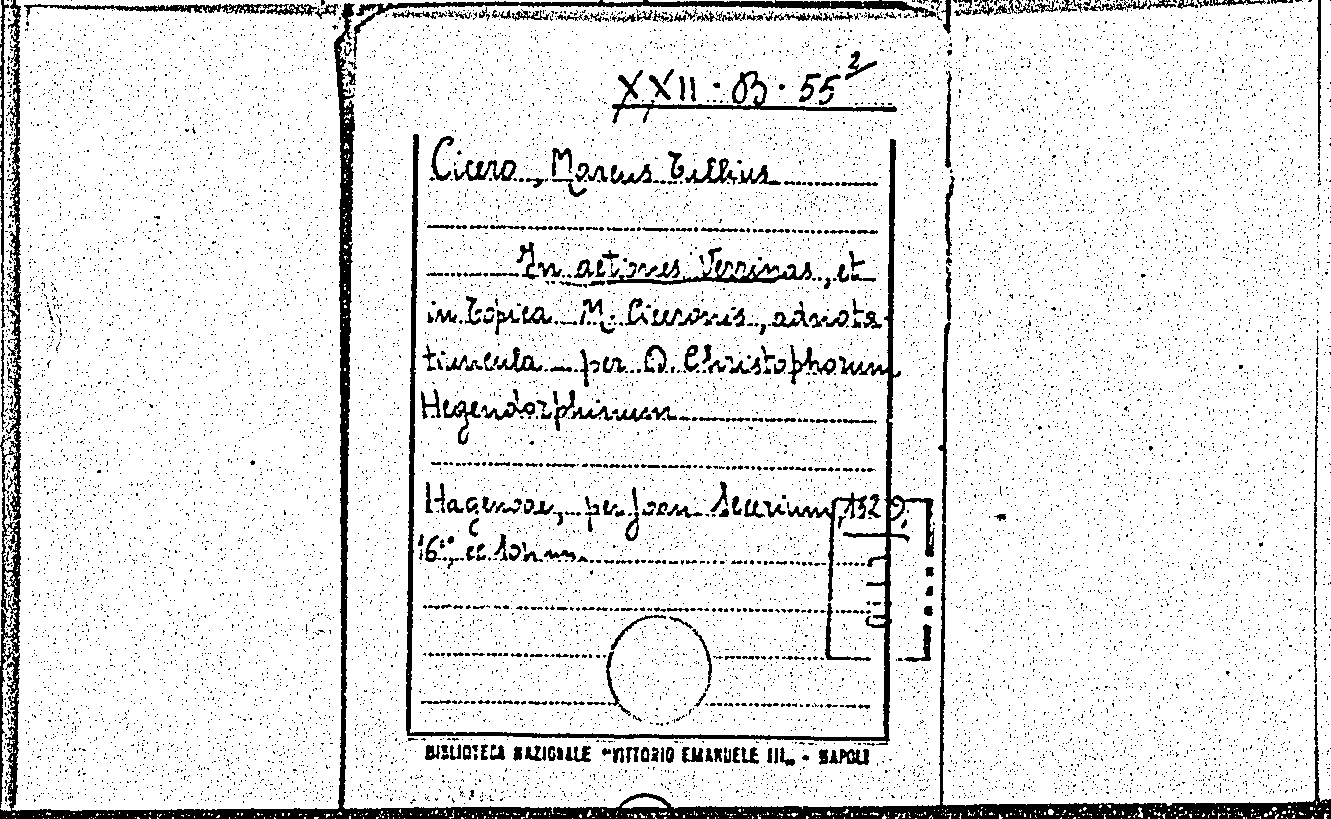 XXII · B · 55 2
Cicero, Marcus Tullius
In actiones Verrinas, et
in Topica M. Ciceronis, adnota-
tiuncula per D. Christophorum
Hegendorphinum
Hagenoae, per Joan Secerium, 1529.
16°,
BIBLIOTECA NAZIONALE "VITTORIO EMANUELE III„ - NAPOLI